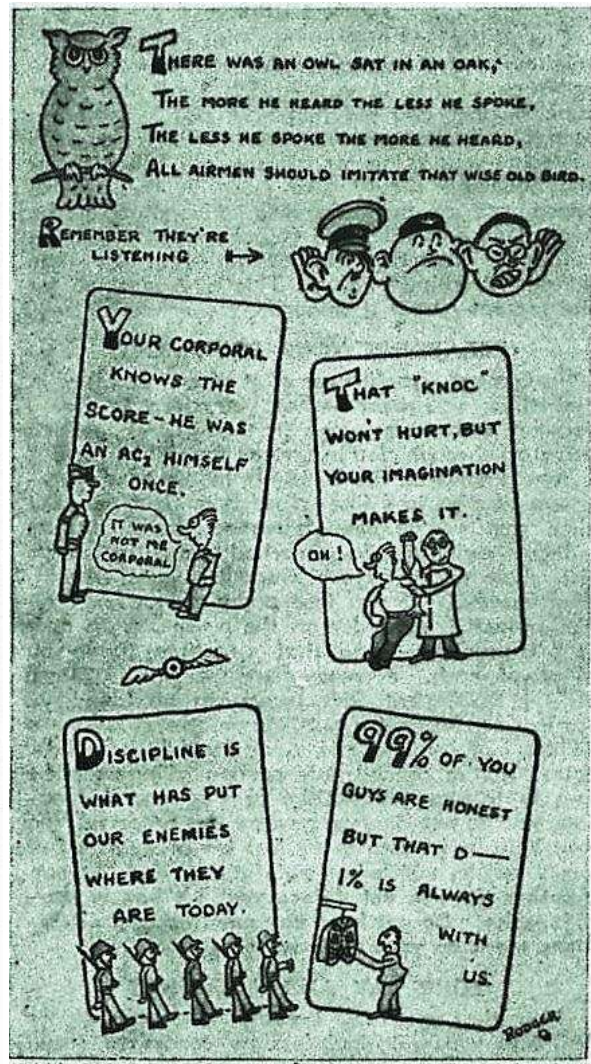 THERE WAS AN OWL SAT IN AN OAK,
THE MORE HE HEARD THE LESS HE SPOKE,
THE LESS HE SPOKE THE MORE HE HEARD,
ALL AIRMEN SHOULD IMITATE THAT WISE OLD BIRD.
REMEMBER THEY'RE
LISTENING
YOUR CORPORAL
KNOWS THE
SCORE - HE WAS
AN AC2 HIMSELF
ONCE.
IT WAS
NOT ME
CORPORAL
THAT "KNOC"
WON'T HURT, BUT
YOUR IMAGINATION
MAKES IT.
OH!
DISCIPLINE IS
WHAT HAS PUT
OUR ENEMIES
WHERE THEY
ARE TODAY.
99% OF YOU
GUYS ARE HONEST
BUT THAT D——
1% IS ALWAYS
WITH
US.
RODGER